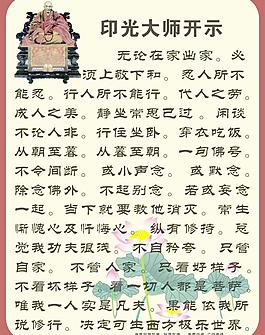 印光大师开示
无论在家出家。必
须上敬下和。忍人所不
能忍。行人所不能行。代人之劳。
成人之美。静坐常思己过。闲谈
不论人非。行住坐卧。穿衣吃饭。
从朝至暮。从暮至朝。一句佛号。
不令间断。或小声念。或默念。
除念佛外。不起别念。若或妄念
一起。当下就要教他消灭。常生
惭愧心及忏悔心。纵有修持。总
觉我功夫很浅。不自矜夸。只管
自家。不管人家。只看好样子。
不看坏样子。看一切人都是菩萨
唯我一人实是凡夫。果能依我所
说修行。决定可生西方极乐世界。